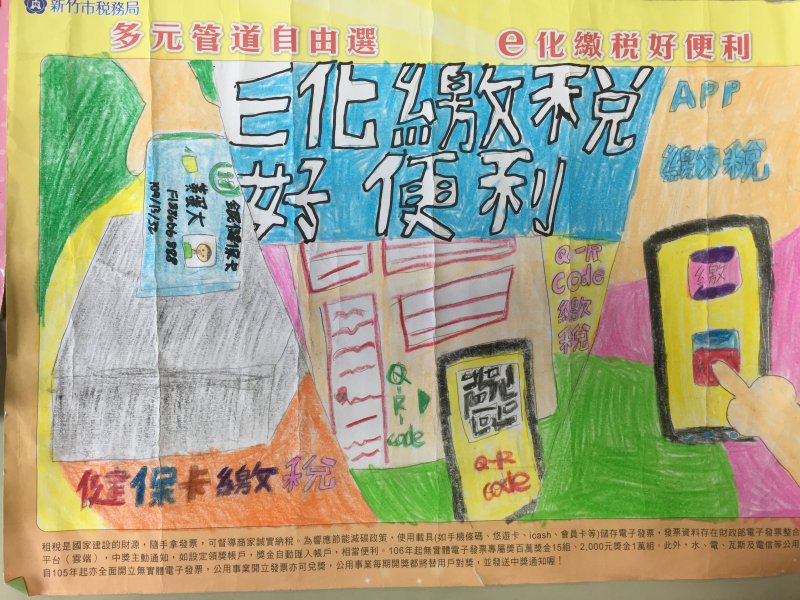 新竹市稅務局
多元管道自由選
e化繳稅好便利
E化繳稅
好便利
APP
繳稅
全民健康保險卡
F128606888
Q-R
code
繳
稅
繳
Q-R-code
Q-R
code
健保卡繳稅
租稅是國家建設的財源，隨手拿發票，可督導商家誠實納稅。為響應節能減碳政策，使用載具(如手機條碼、悠遊卡、icash、會員卡等)儲存電子發票，發票資料存在財政部電子發票整合
平台（雲端），中獎主動通知，如設定領獎帳戶，獎金自動匯入帳戶，相當便利。106年起無實體電子發票專屬獎百萬獎金15組、2,000元獎金1萬組。此外，水、電、瓦斯及電信等公用
自105年起亦全面開立無實體電子發票，公用事業開立發票亦可兌獎，公用事業每期開獎都將替用戶對獎，並發送中獎通知喔！